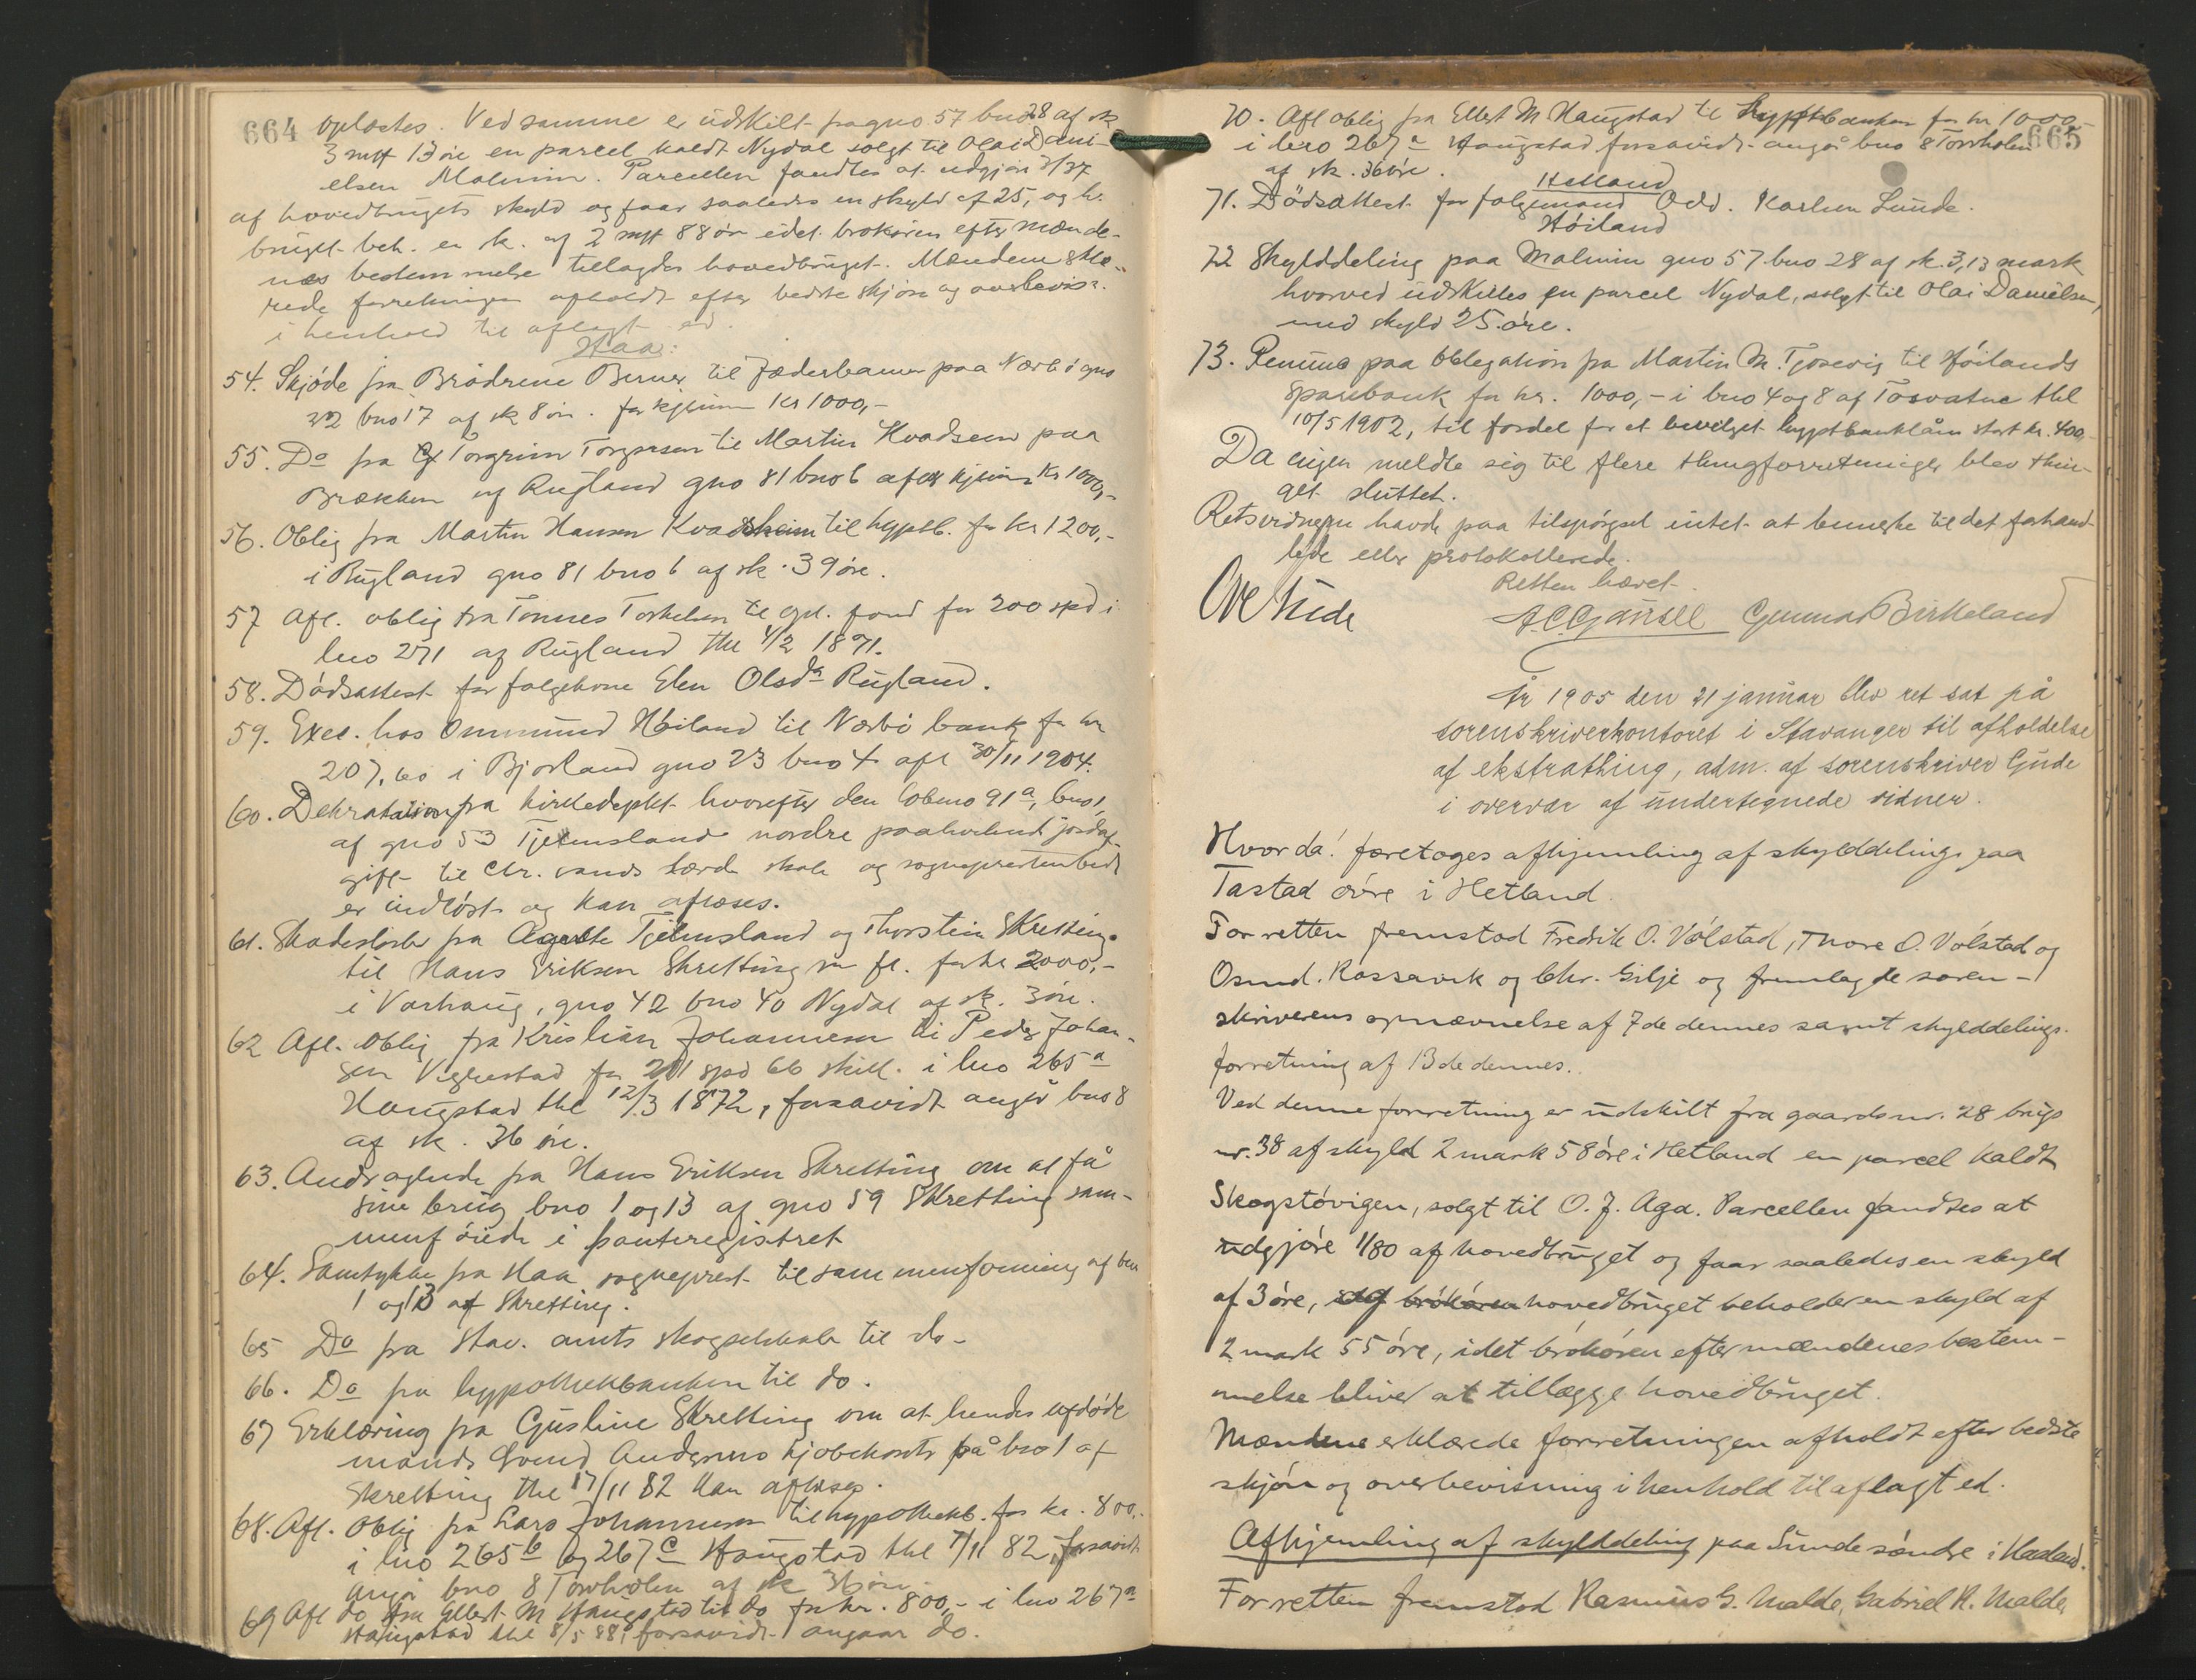 664
oplæstes. Ved samme er udskilt fra gno 57 bno 28 af sk
3 mrk 13 øre en parcel kaldt Nydal solgt til Olai Dani-
elsen Malmin. Parcellen fandtes at udgjøre 3/37
af hovedbrugets skyld og faar saaledes en skyld af 25, og h.
bruget beh. en sk. af 2 mrk 88 øre idet brøkøren efter mænde-
nes bestemmelse tillagdes hovedbruget. Mændene erklæ-
rede forretningen afholdt efter bedste skjøn og overbevisn.
i henhold til aflagt ed.
Haa:
54. Skjøde fra Brødrene Berner til Jæderbanen paa Nærbø gno
bno 17 af sk 8 øre. for kjøbesum Kr 1000,-
55. Do fra Torgrim Torgersen til Martin Kvadsem paa
Brækken af Rugland gno 81 bno 6 kjøbesum Kr 1000,-
56. Oblig fra Martin Hansen Kvadsheim til hyptb. for Kr 1200,-
i Rugland gno 81 bno 6 af sk. 39 øre.
57 Afl. oblig fra Tønnes Torkelsen til opl. fond for 200 spd i
lno 271 af Rugland thl 4/2 1871.
58. Dødsattest for folgekone Elen Olsda Rugland.
59. Exec. hos Ommund Høiland til Nærbø bank for kr
207,60 i Bjorland gno 23 bno 4 afl 30/11 1904.
60. Deklaration fra kirkedeptet hvorefter den løbeno 91a, bno 1,
af gno 53 Tjemsland nordre paahvilende jordaf-
gift til Chr.sands lærde skole og sogneprestembed
er indløst og kan aflæses.
61. Skadesløsbr fra Agathe Tjemsland og Thorstein Skretting
til Hans Eriksen Skretting m fl. for kr 2000,-
i Varhaug, gno 42 bno 40 Nydal af sk. 3 øre.
62 Afl. oblig fra Kristian Johannesen til Peder Johan-
sen Vigrestad for 201 spd 66 skill. i lno 265a
Haugstad thl 12/3 1872, forsavidt angår bno 8
af sk. 36 øre.
63. Andragende fra Hans Eriksen Skretting om at få
sine brug bno 1 og 13 af gno 59 Skretting sam-
menføiede i panteregistret
64. Samtykke fra Haa sogneprest til sammenføining af bno
1 og 13 af Skretting.
65 Do fra Stav. amts skogselskab til do-
66. Do fra hypothekbanken til do.
67 Erklæring fra Gusline Skretting om at hendes afdøde
mands Svend Andersens kjøbekontr på bno 1 af
Skretting thl 17/11 82 kan aflæses.
68. Afl. oblig fra Lars Johannesen til hypothekb. for kr. 800,-
i lno 265b og 267c Haugstad thl 7/11 82, forsavidt
angår bno 8 Torvholen af sk 36 øre.
69 Afl do fra Ellert M Haugstad til do for kr. 800,- i lno 267a
Haugstad thl 8/5 88, forsavidt angaar do.
665
70. Afl oblig fra Ellert M Haugstad til Hypothekbanken for kr 1000,-
i lno 267a Haugstad forsavidt angår bno 8 Torvholen
af sk. 36 øre.
Hetland
71. Dødsattest for folgemand Odd. Karlsen Lunde.
Høiland
72 Skylddeling paa Malmin gno 57 bno 28 af sk. 3,13 mark
hvorved udskilles en parcel Nydal, solgt til Olai Danielsen,
med skyld 25 øre.
73. Penuma paa Obligation fra Martin M. Tjosevig til Høilands
Sparebank for kr. 1000,- i bno 4 og 8 af Tosvatne thl
10/5 1902, til fordel for et bevilget hyptbanklån stort kr. 400,-
Da ingen meldte sig til flere thingforretninger blev thin-
get sluttet.
Retsvidnerne havde paa tilspørgsel intet at bemerke til det forhand-
lede eller protokollerede.
Retten hævet.
Ove Gude
A.C. Gausel Gunnar Birkeland
År 1905 den 21 januar blev ret sat på
sorenskriverkontoret i Stavanger til afholdelse
af ekstrathing, adm. af sorenskriver Gude
i overvær af undertegnede vidner.
Hvor da! foretoges afhjemling af skylddelings paa
Tastad øvre i Hetland
For retten fremstod Fredrik O. Volstad, Thore O. Volstad og
Osmd. Rossavik og Chr. Gilje og fremlagde soren-
skriverens opnævnelse af 7de dennes samt skylddelings-
forretning af 13de dennes.
Ved denne forretning er udskilt fra gaardsnr. 28 brugs
nr. 38 af skyld 2 mark 58 øre i Hetland en parcel kaldt
Skogstøvigen, solgt til O. J. Aga. Parcellen fandtes at
udgjøre 1/80 af hovedbruget og faar saaledes en skyld
af 3 øre, og brøkøren hovedbruget beholder en skyld af
2 mark 55 øre, idet brøkøren efter mændenes bestem-
melse bliver at tillægge hovedbruget.
Mændene erklærede forretningen afholdt efter bedste
skjøn og overbevisning i henhold til aflagt ed.
Afhjemling af skylddeling paa Sunde søndre i Hadland.
For retten fremstod Rasmus G. Malde, Gabriel R. Malde,